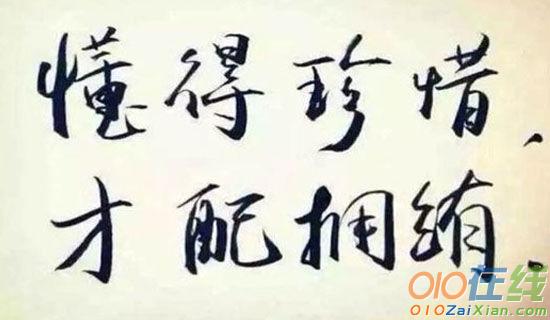 懂得珍惜、
才配拥絠.
010在线
010ZaiXian.com